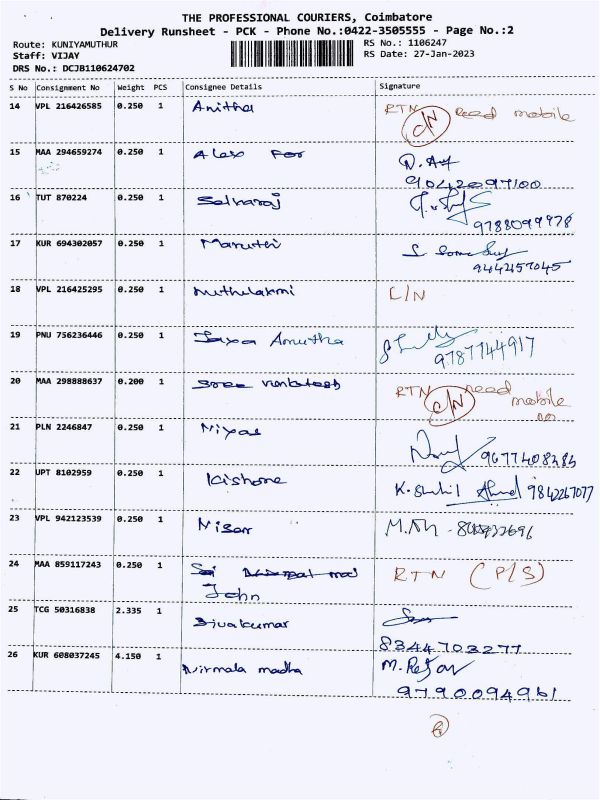 THE PROFESSIONAL COURIERS, Coimbatore
Delivery Runsheet - PCK - Phone No.:0422-3505555 - Page No.:2
Route: KUNIYAMUTHUR RS No.: 1106247
Staff: VIJAY RS Date: 27-Jan-2023
DRS No.: DCJB110624702
S No Consignment No Weight PCS Consignee Details Signature
14 VPL 216426585 0.250 1 Anitha RTN C/N need mobile
15 MAA 294659274 0.250 1 Alex For
9042097100
16 TUT 870224 0.250 1 Selvaraj
9788099978
17 KUR 694302057 0.250 1 Maruthi
9442457045
18 VPL 216425295 0.250 1 Muthulakmi C/N
19 PNU 756236446 0.250 1 Jaya Amutha
9787744917
20 MAA 298888637 0.200 1 Sree Venkatesh RTN C/N need
mobile
no
21 PLN 2246847 0.250 1 Niyas
9677408484
22 UPT 8102959 0.250 1 Kishore K. 9842267077
23 VPL 942123539 0.250 1 Nisar
24 MAA 859117243 0.250 1 RTN (P/S)
John
25 TCG 50316838 2.335 1 Sivakumar
8344703277
26 KUR 608037245 4.150 1 Nirmala madha M.
9790094961